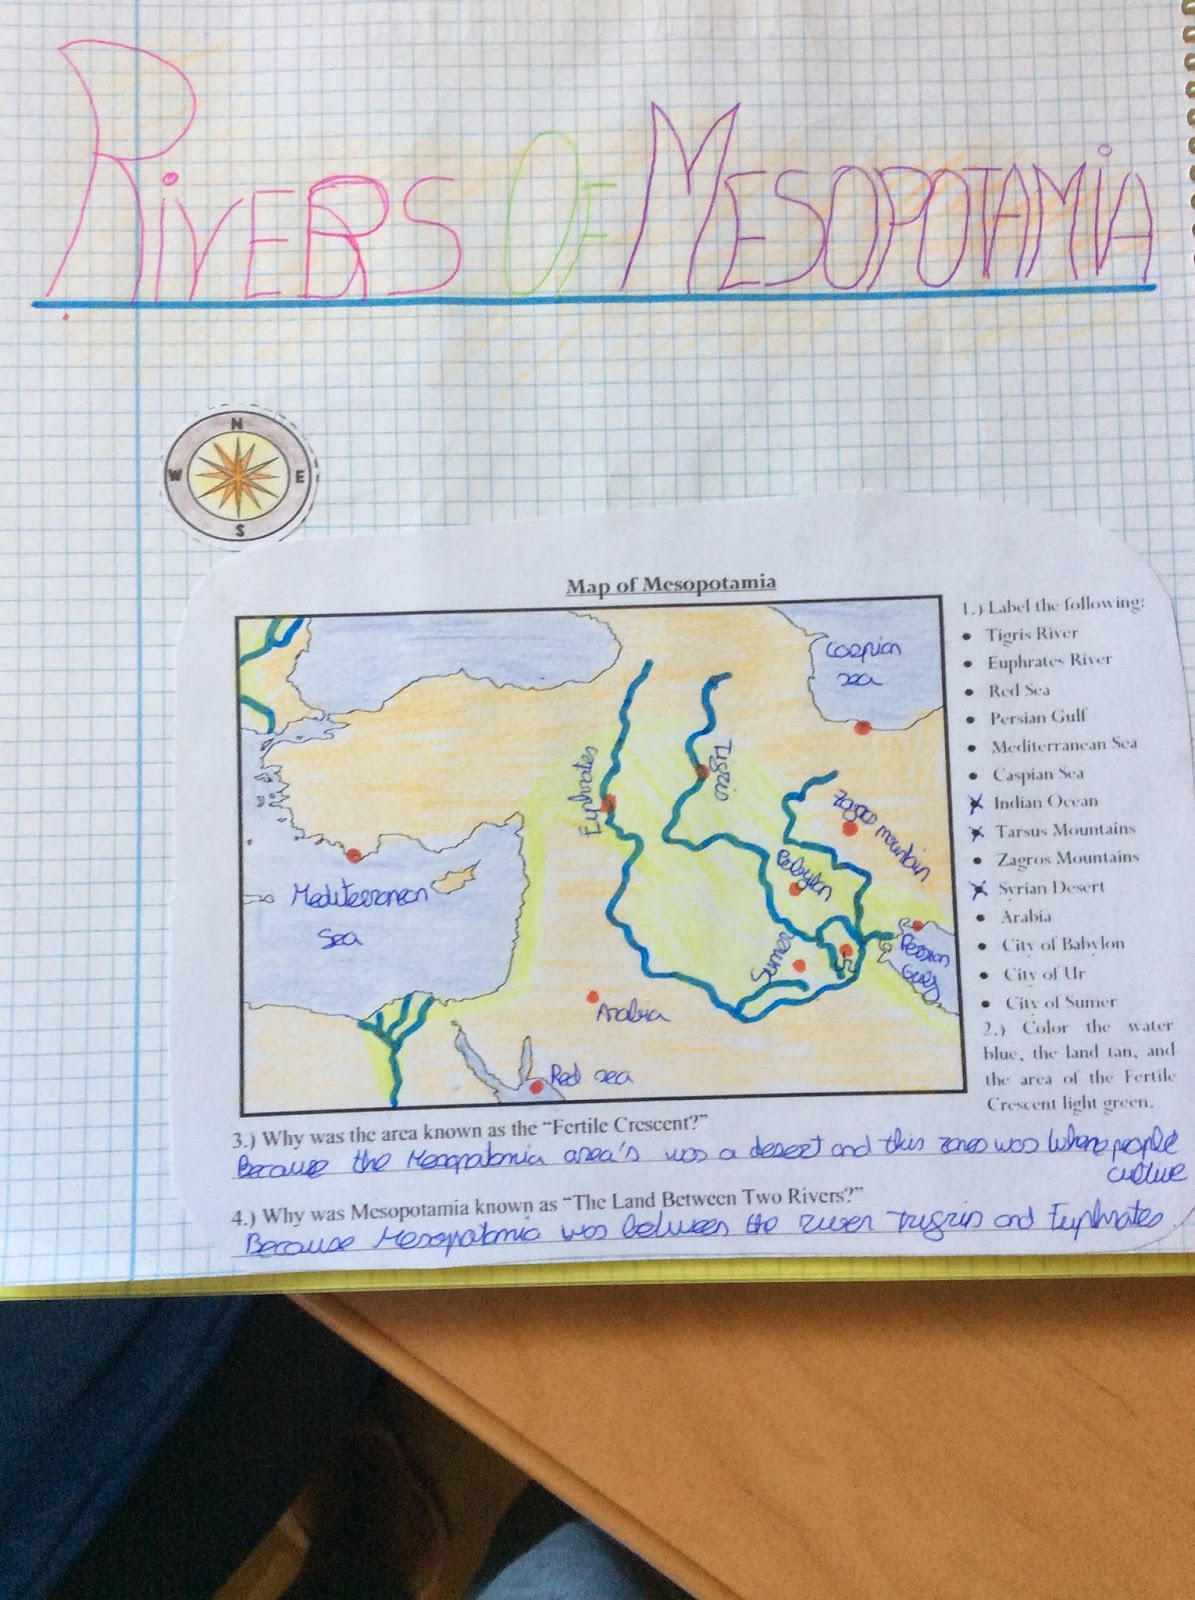 RiVERS OF MESOPOTAMiA
N
W E
S
Map of Mesopotamia
Caspian
sea
Euphrates
Tigris
Zagos mountain
Babylon
Mediterranean
Sea
Sumer
Persian
Gulf
Arabia
Red sea
1.) Label the following:
• Tigris River
• Euphrates River
• Red Sea
• Persian Gulf
• Mediterranean Sea
• Caspian Sea
• Indian Ocean
• Tarsus Mountains
• Zagros Mountains
• Syrian Desert
• Arabia
• City of Babylon
• City of Ur
• City of Sumer
2.) Color the water
blue, the land tan, and
the area of the Fertile
Crescent light green.
3.) Why was the area known as the “Fertile Crescent?”
Because the Mesopotamia area's was a desert and this zones was where people
culture
4.) Why was Mesopotamia known as “The Land Between Two Rivers?”
Because Mesopotamia was between the river Trigris and Euphrates